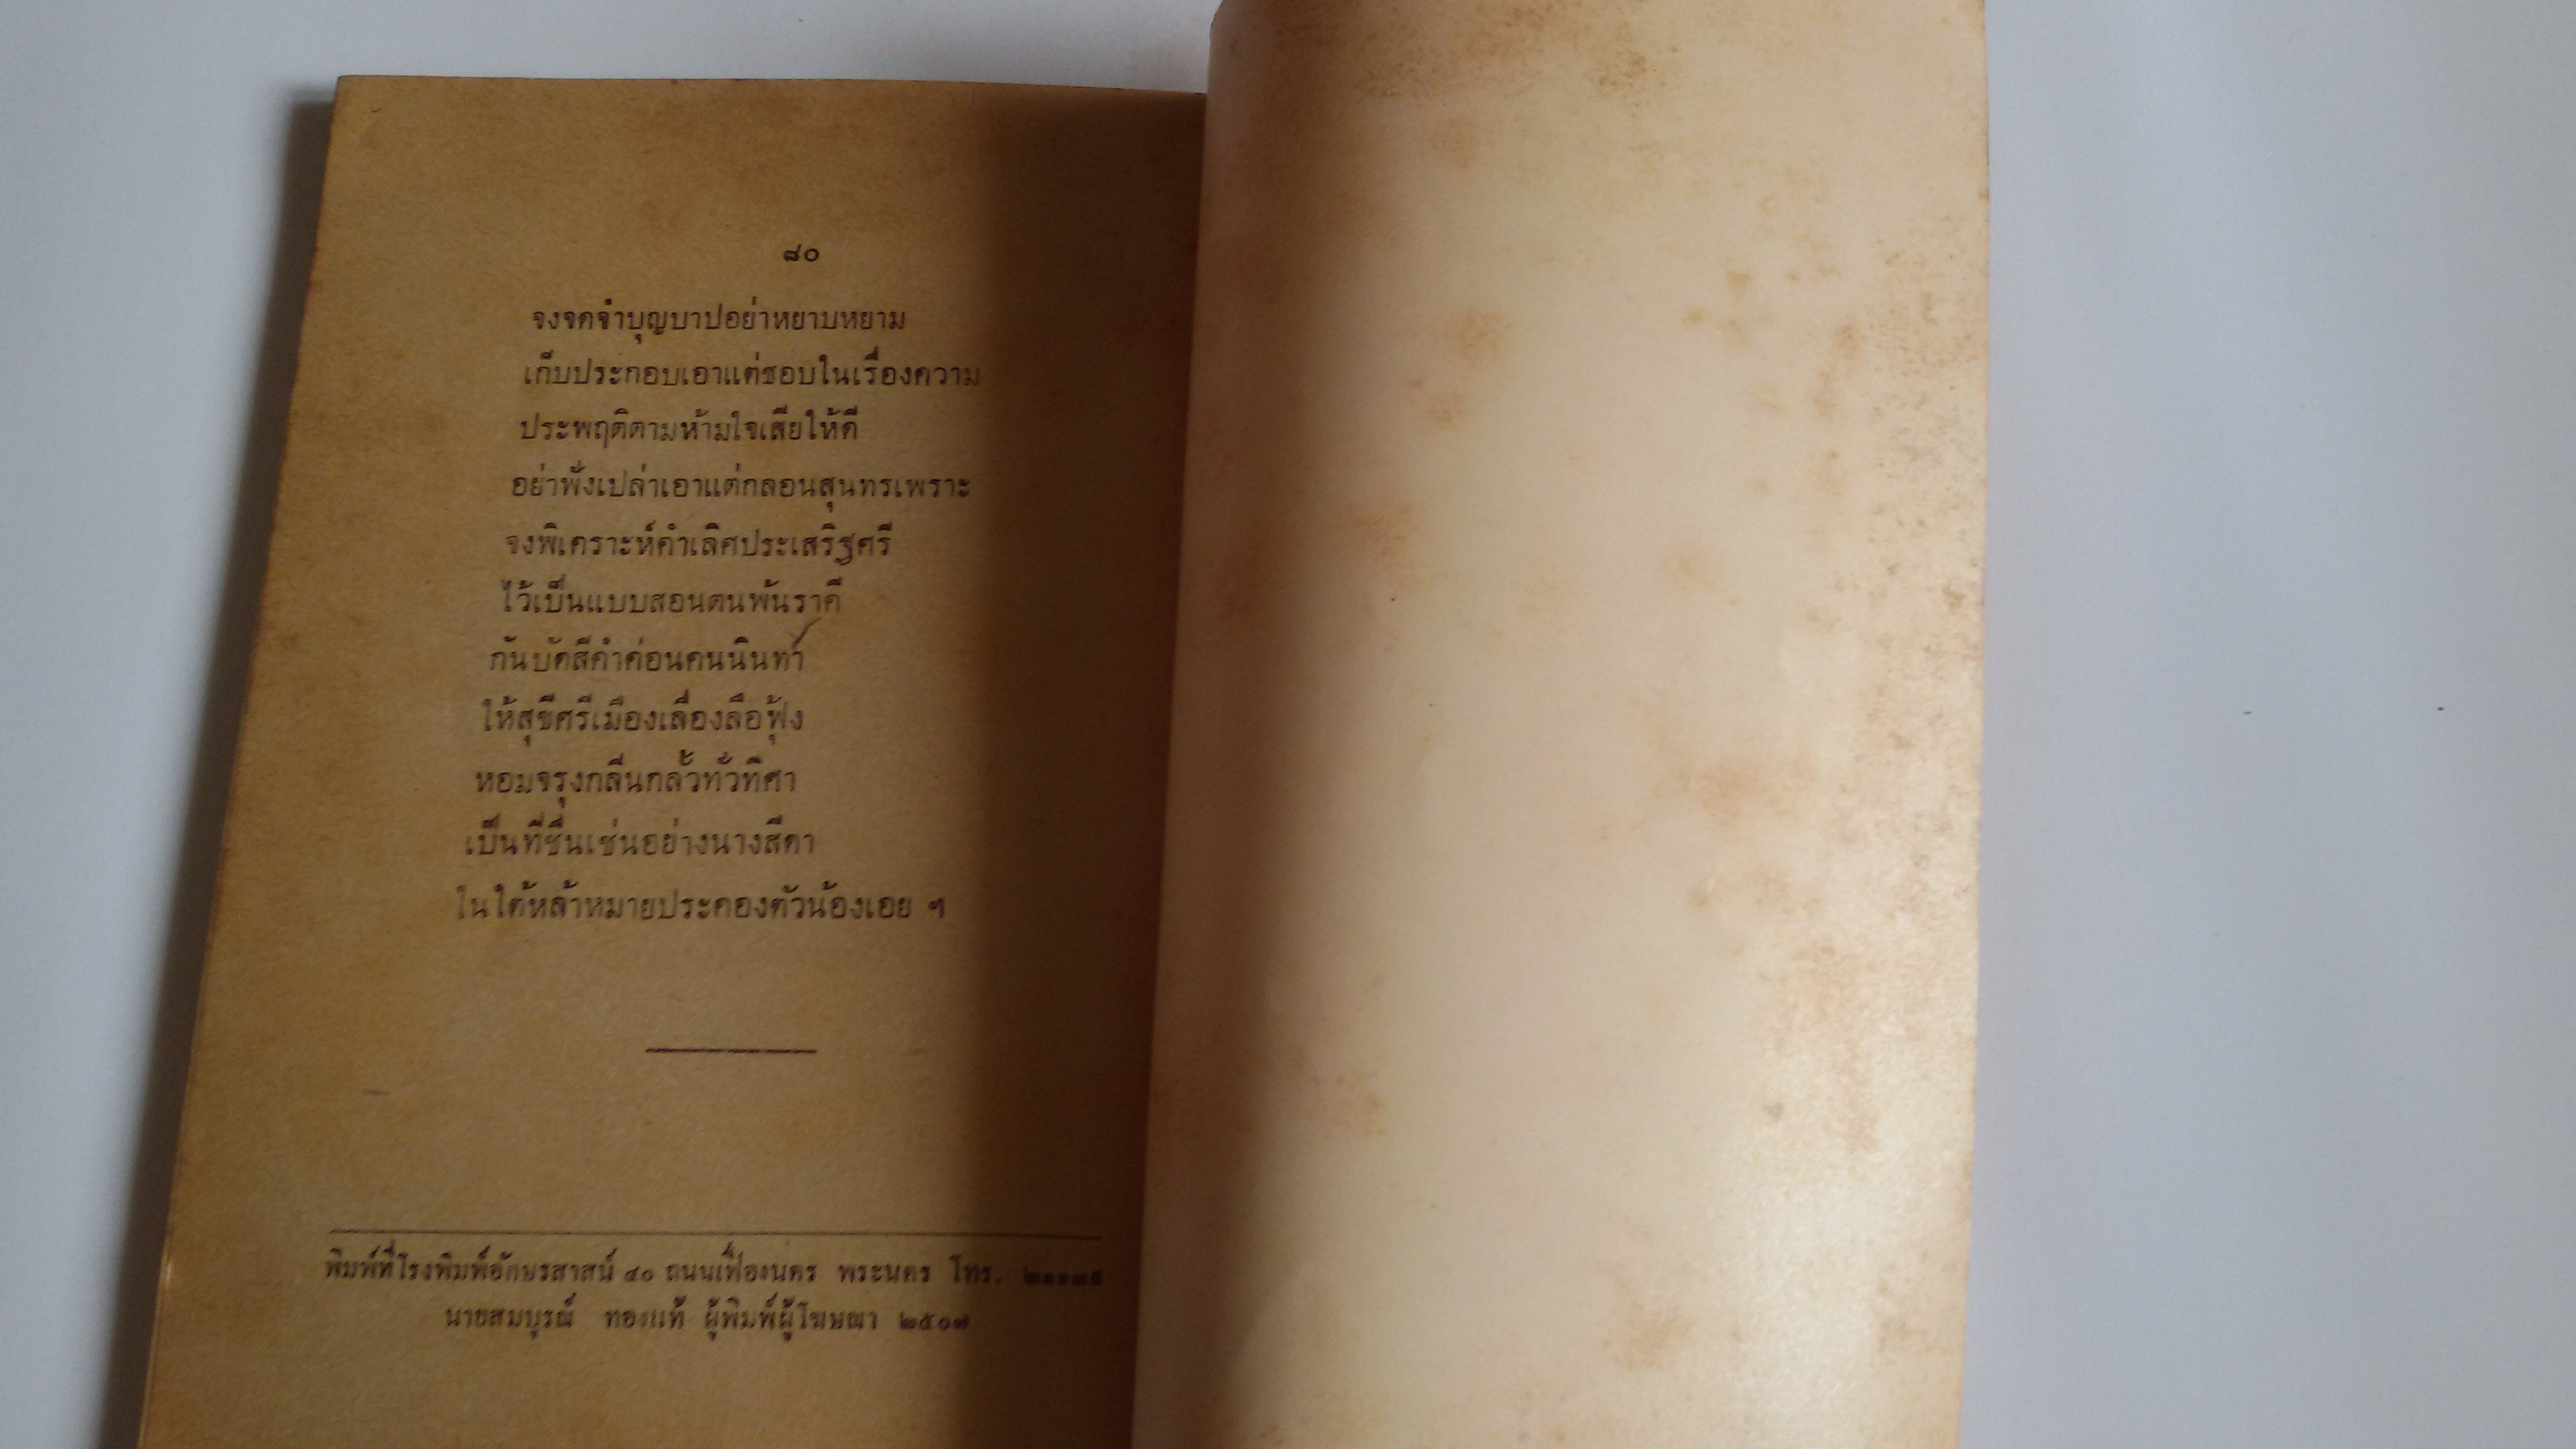 ๘๐
จงจดจำบุญบาปอย่าหยาบหยาม
เก็บประกอบเอาแต่ชอบในเรื่องความ
ประพฤติตามห้ามใจเสียให้ดี
อย่าฟังเปล่าเอาแต่กลอนสุนทรเพราะ
จงพิเคราะห์คำเลิศประเสริฐศรี
ไว้เป็นแบบสอนตนพ้นราคี
กันบัดสีคำค่อนคนนินทา
ให้สุขีศรีเมืองเลื่องลือฟุ้ง
หอมจรุงกลิ่นกลั้วทั่วทิศา
เป็นที่ชื่นเช่นอย่างนางสีดา
ในใต้หล้าหมายประคองตัวน้องเอย ฯ
พิมพ์ที่โรงพิมพ์อักษรสาสน์ ๔๐ ถนนเฟื่องนคร พระนคร โทร.
นายสมบูรณ์ ทองแท้ ผู้พิมพ์ผู้โฆษณา ๒๕๐๗